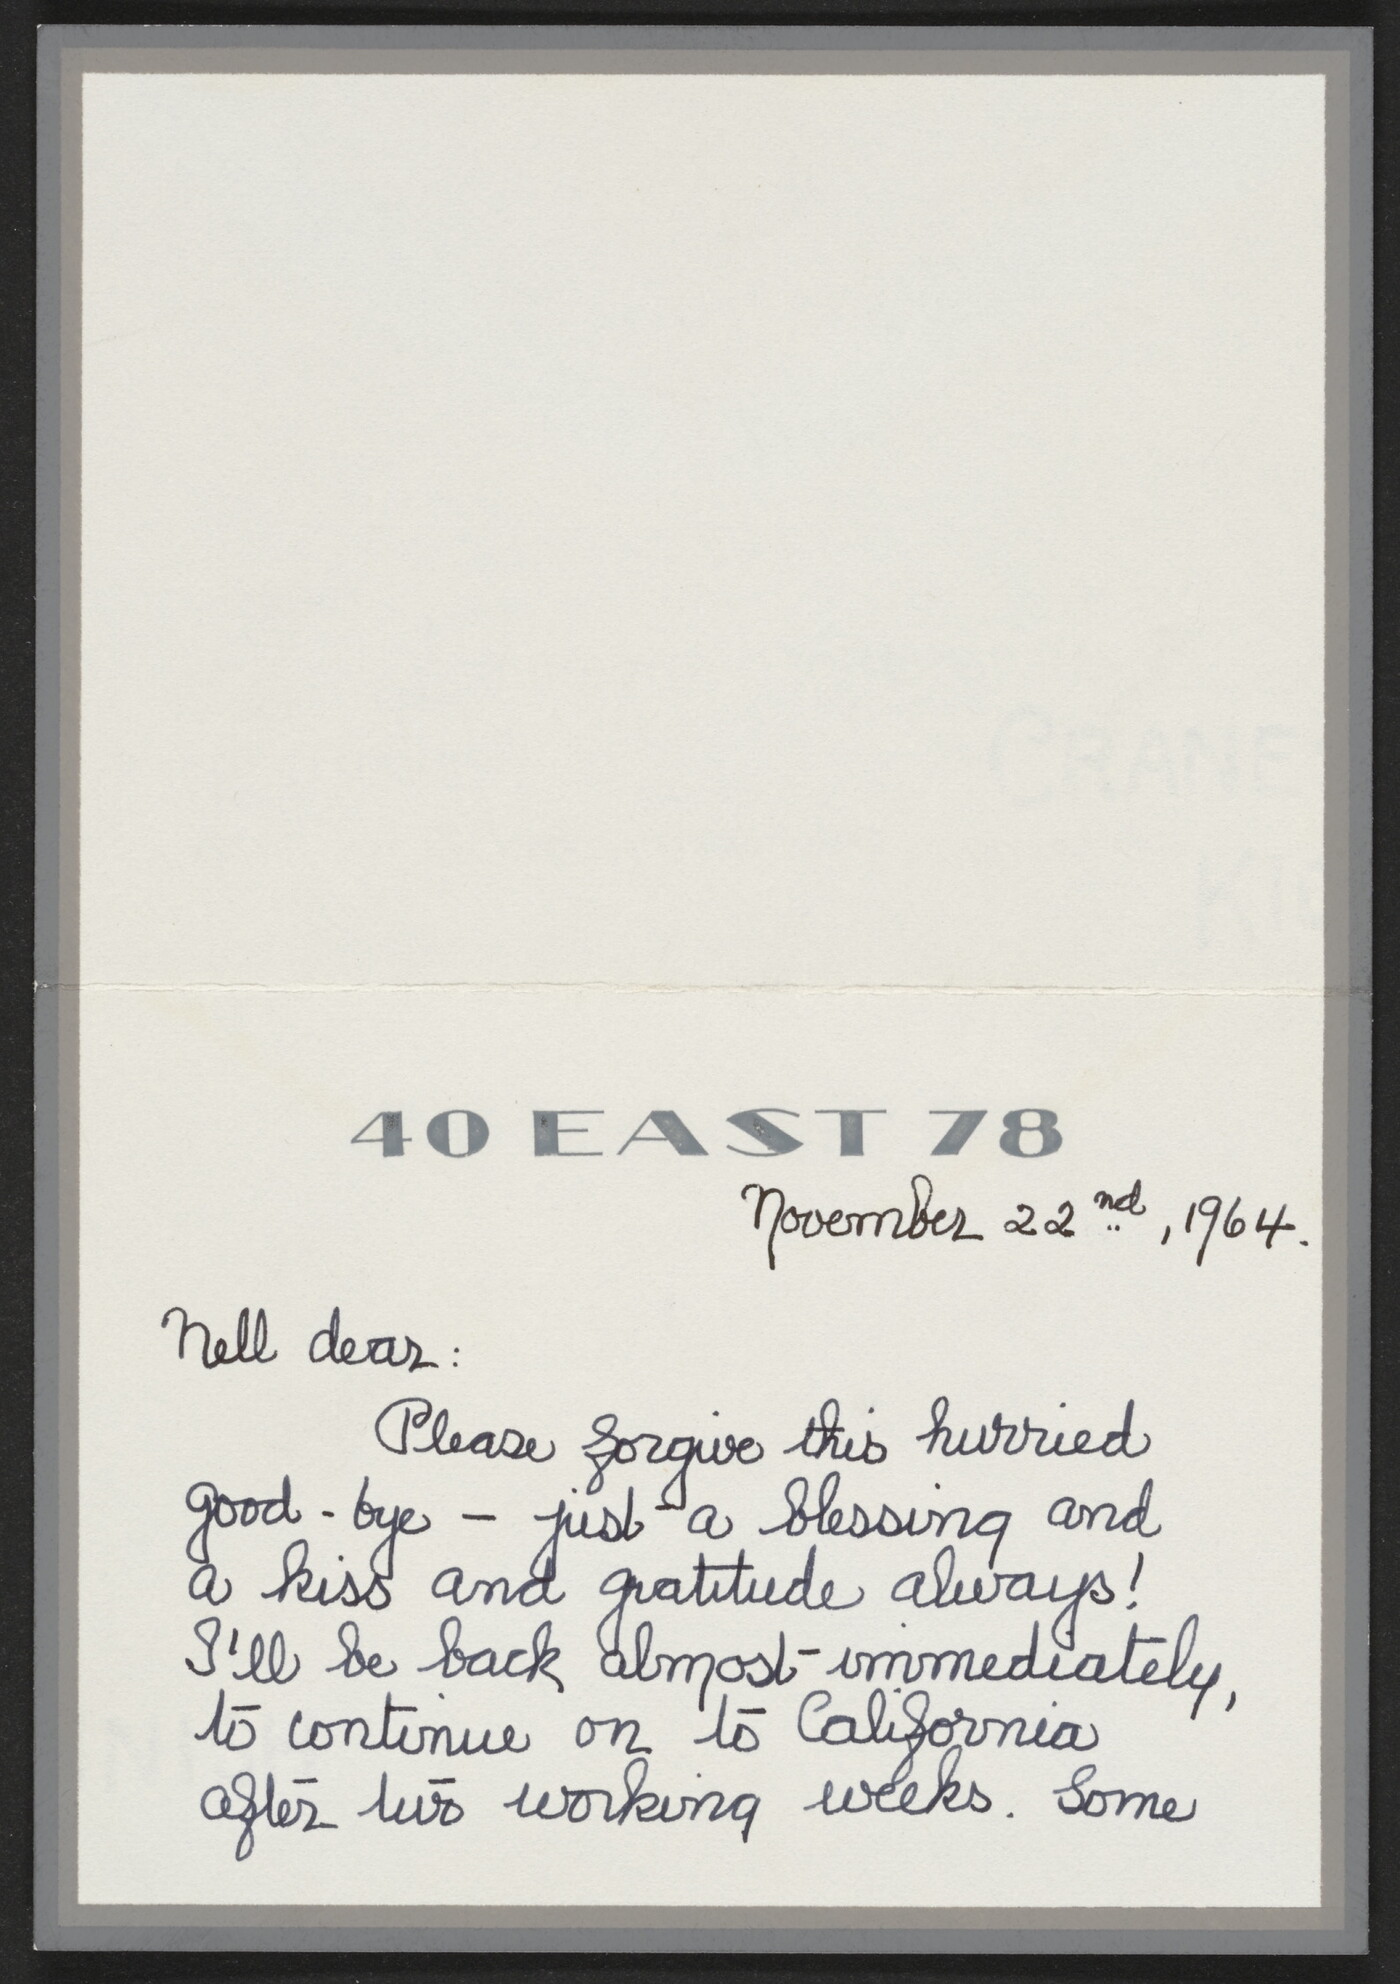 40 EAST 78
November 22nd, 1964.
Nell dear:
Please forgive this hurried
good-bye – just a blessing and
a kiss and gratitude always!
I'll be back almost immediately,
to continue on to California
after two working weeks. Some